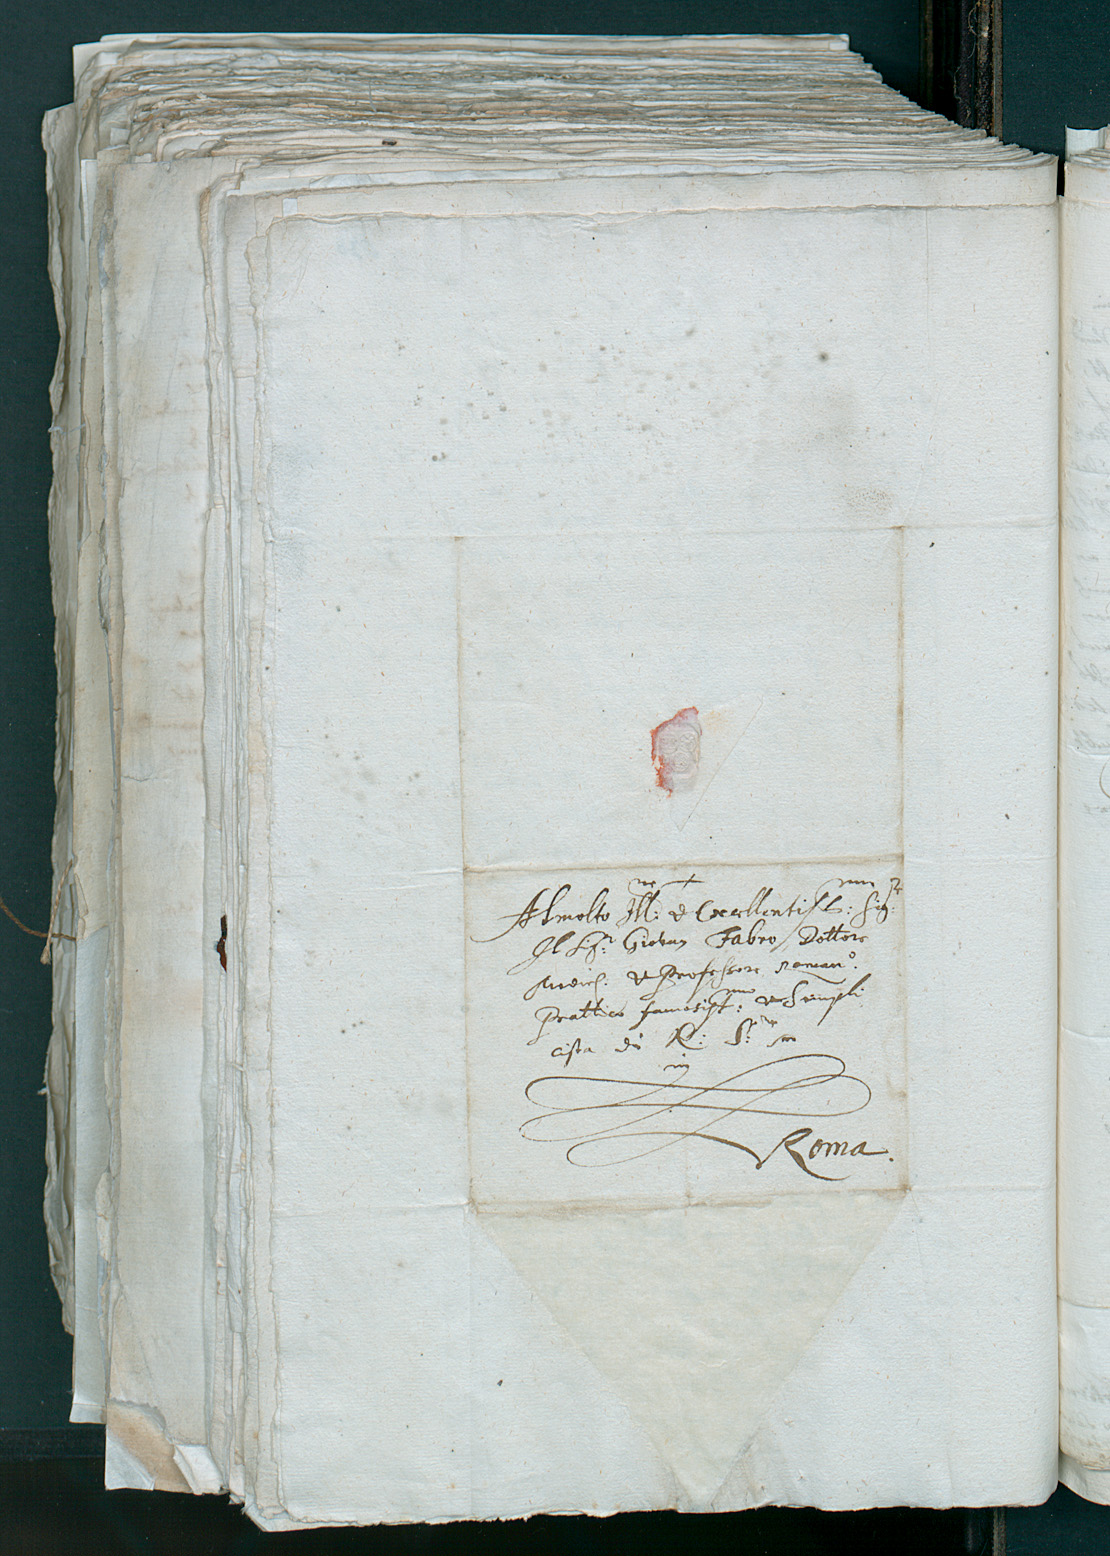 Al molto Ill:re & Eccellentiss:mo Sig:re
Il Sig:r Giovan Fabro Dottore
Medich: & professore Roman:o
Prattico famosiss:mo & Simpli
cista di N: S:re
in
Roma.